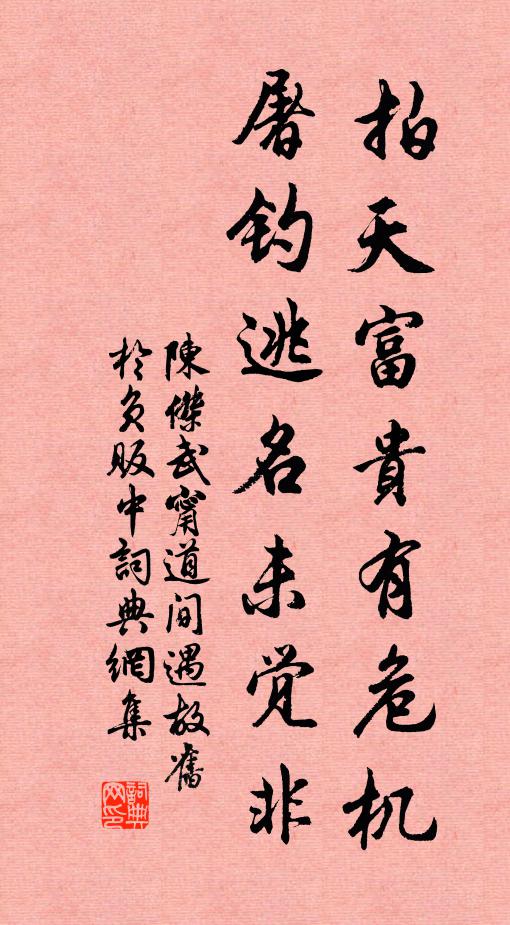 拍天富貴有危机
屠钓逃名未觉非
陳傑武甯道间遇故舊
於负販中詞典網集
詞典网印